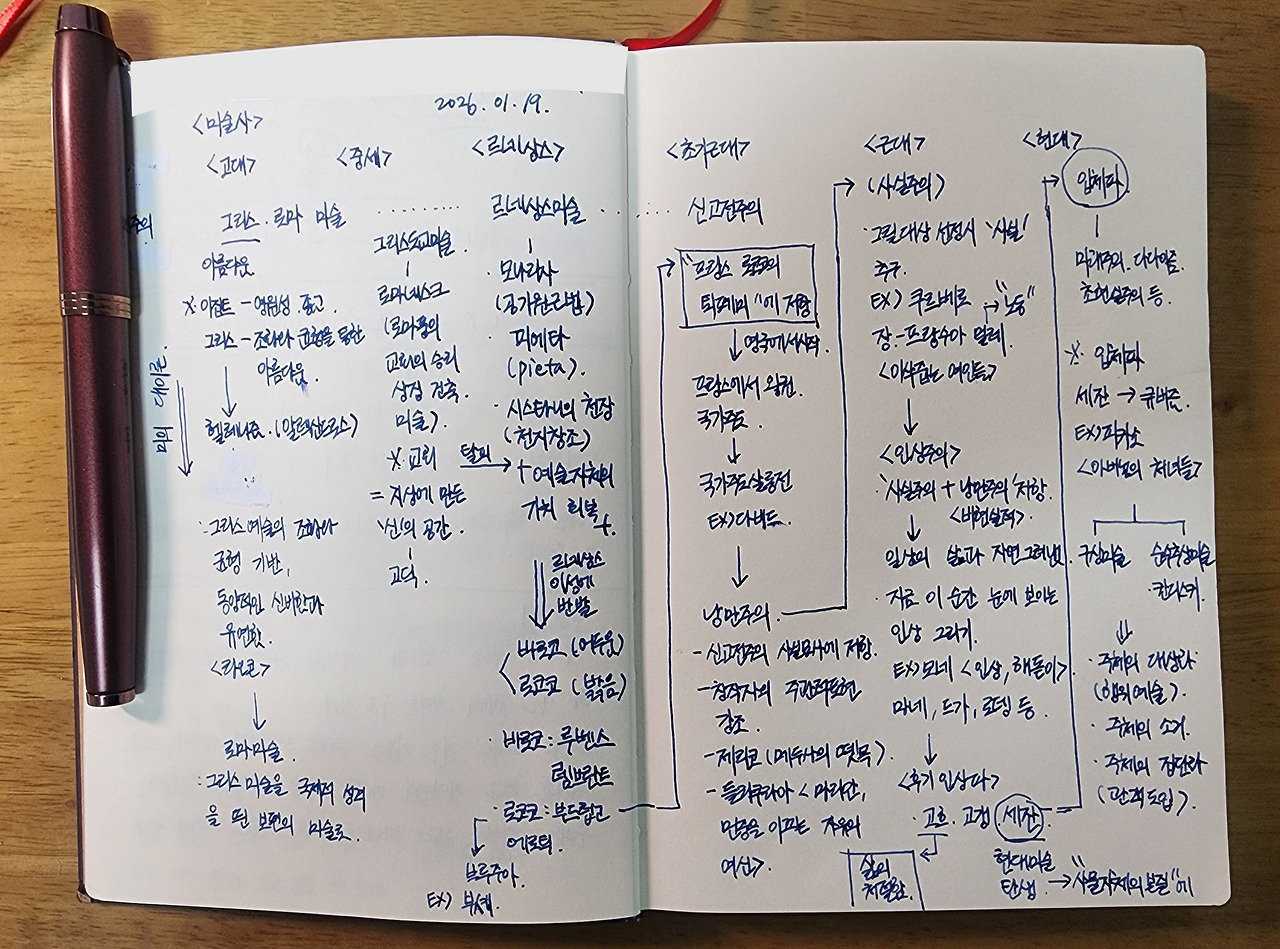 2026. 01. 19.
<미술사>
<고대>
그리스. 로마 미술
아름다움
※ 이집트 - 영원성 추구
그리스 - 조화와 균형을 통한
아름다움.
미의 대이론.
헬레니즘. (알렉산드로스)
: 그리스 예술의 조화와
균형 기반,
동양적인 신비함과
유연함.
<라오콘>
로마미술.
: 그리스 미술을 국제적 성격
을 띤 보편의 미술로.
<중세>
그리스도교미술.
로마네스크
(로마풍의
교회의 승리
상징 건축.
미술).
※ 교회
= 지상에 만든
'신'의 공간.
고딕.
탈피
<르네상스>
르네상스미술
· 모나리자
(공기원근법)
· 피에타
(pieta).
· 시스티나의 천장
(천지창조)
+ 예술자체의
가치 회복
+.
르네상스
이성에
반발
바로크 (어두움)
로코코 (밝음)
· 바로크 : 루벤스
렘브란트
· 로코코 : 부드럽고
에로틱.
브루주아.
EX) 부셰.
<초기근대>
신고전주의
"프랑스 로코코의
퇴폐미"에 저항
영국에서 시작
프랑스에서 왕권.
국가주도.
국가주도살롱전
EX) 다비드.
낭만주의.
- 신고전주의 사실묘사에 저항.
- 창작자의 주관적표현
강조.
- 제리코 (메두사의 뗏목)
- 들라크루아 < 마리안,
민중을 이끄는 자유의
여신>
<근대>
(사실주의)
· 그릴 대상 선정시 '사실'
추구.
EX) 쿠르베로 "노동"
장-프랑수아 밀레.
<이삭줍는 여인들>
<인상주의>
'사실주의 + 낭만주의' 저항.
<비현실적>
일상의 삶과 자연 그려냄.
· 지금 이 순간 눈에 보이는
인상 그리기.
EX) 모네 <인상, 해돋이>
마네, 드가, 로댕 등.
<후기 인상파>
· 고흐. 고갱 세잔.
삶의
처절함.
현대미술
탄생. → "사물자체의 본질"에
<현대>
입체파
미래주의. 다다이즘.
초현실주의 등.
※ 입체파
세잔 → 큐비즘.
EX) 피카소
<아비뇽의 처녀들>
구상미술 순수추상미술
· 칸딘스키.
· 주체의 대상화
(행위예술).
· 주체의 소거.
· 주체의 집단화
(관객도입).